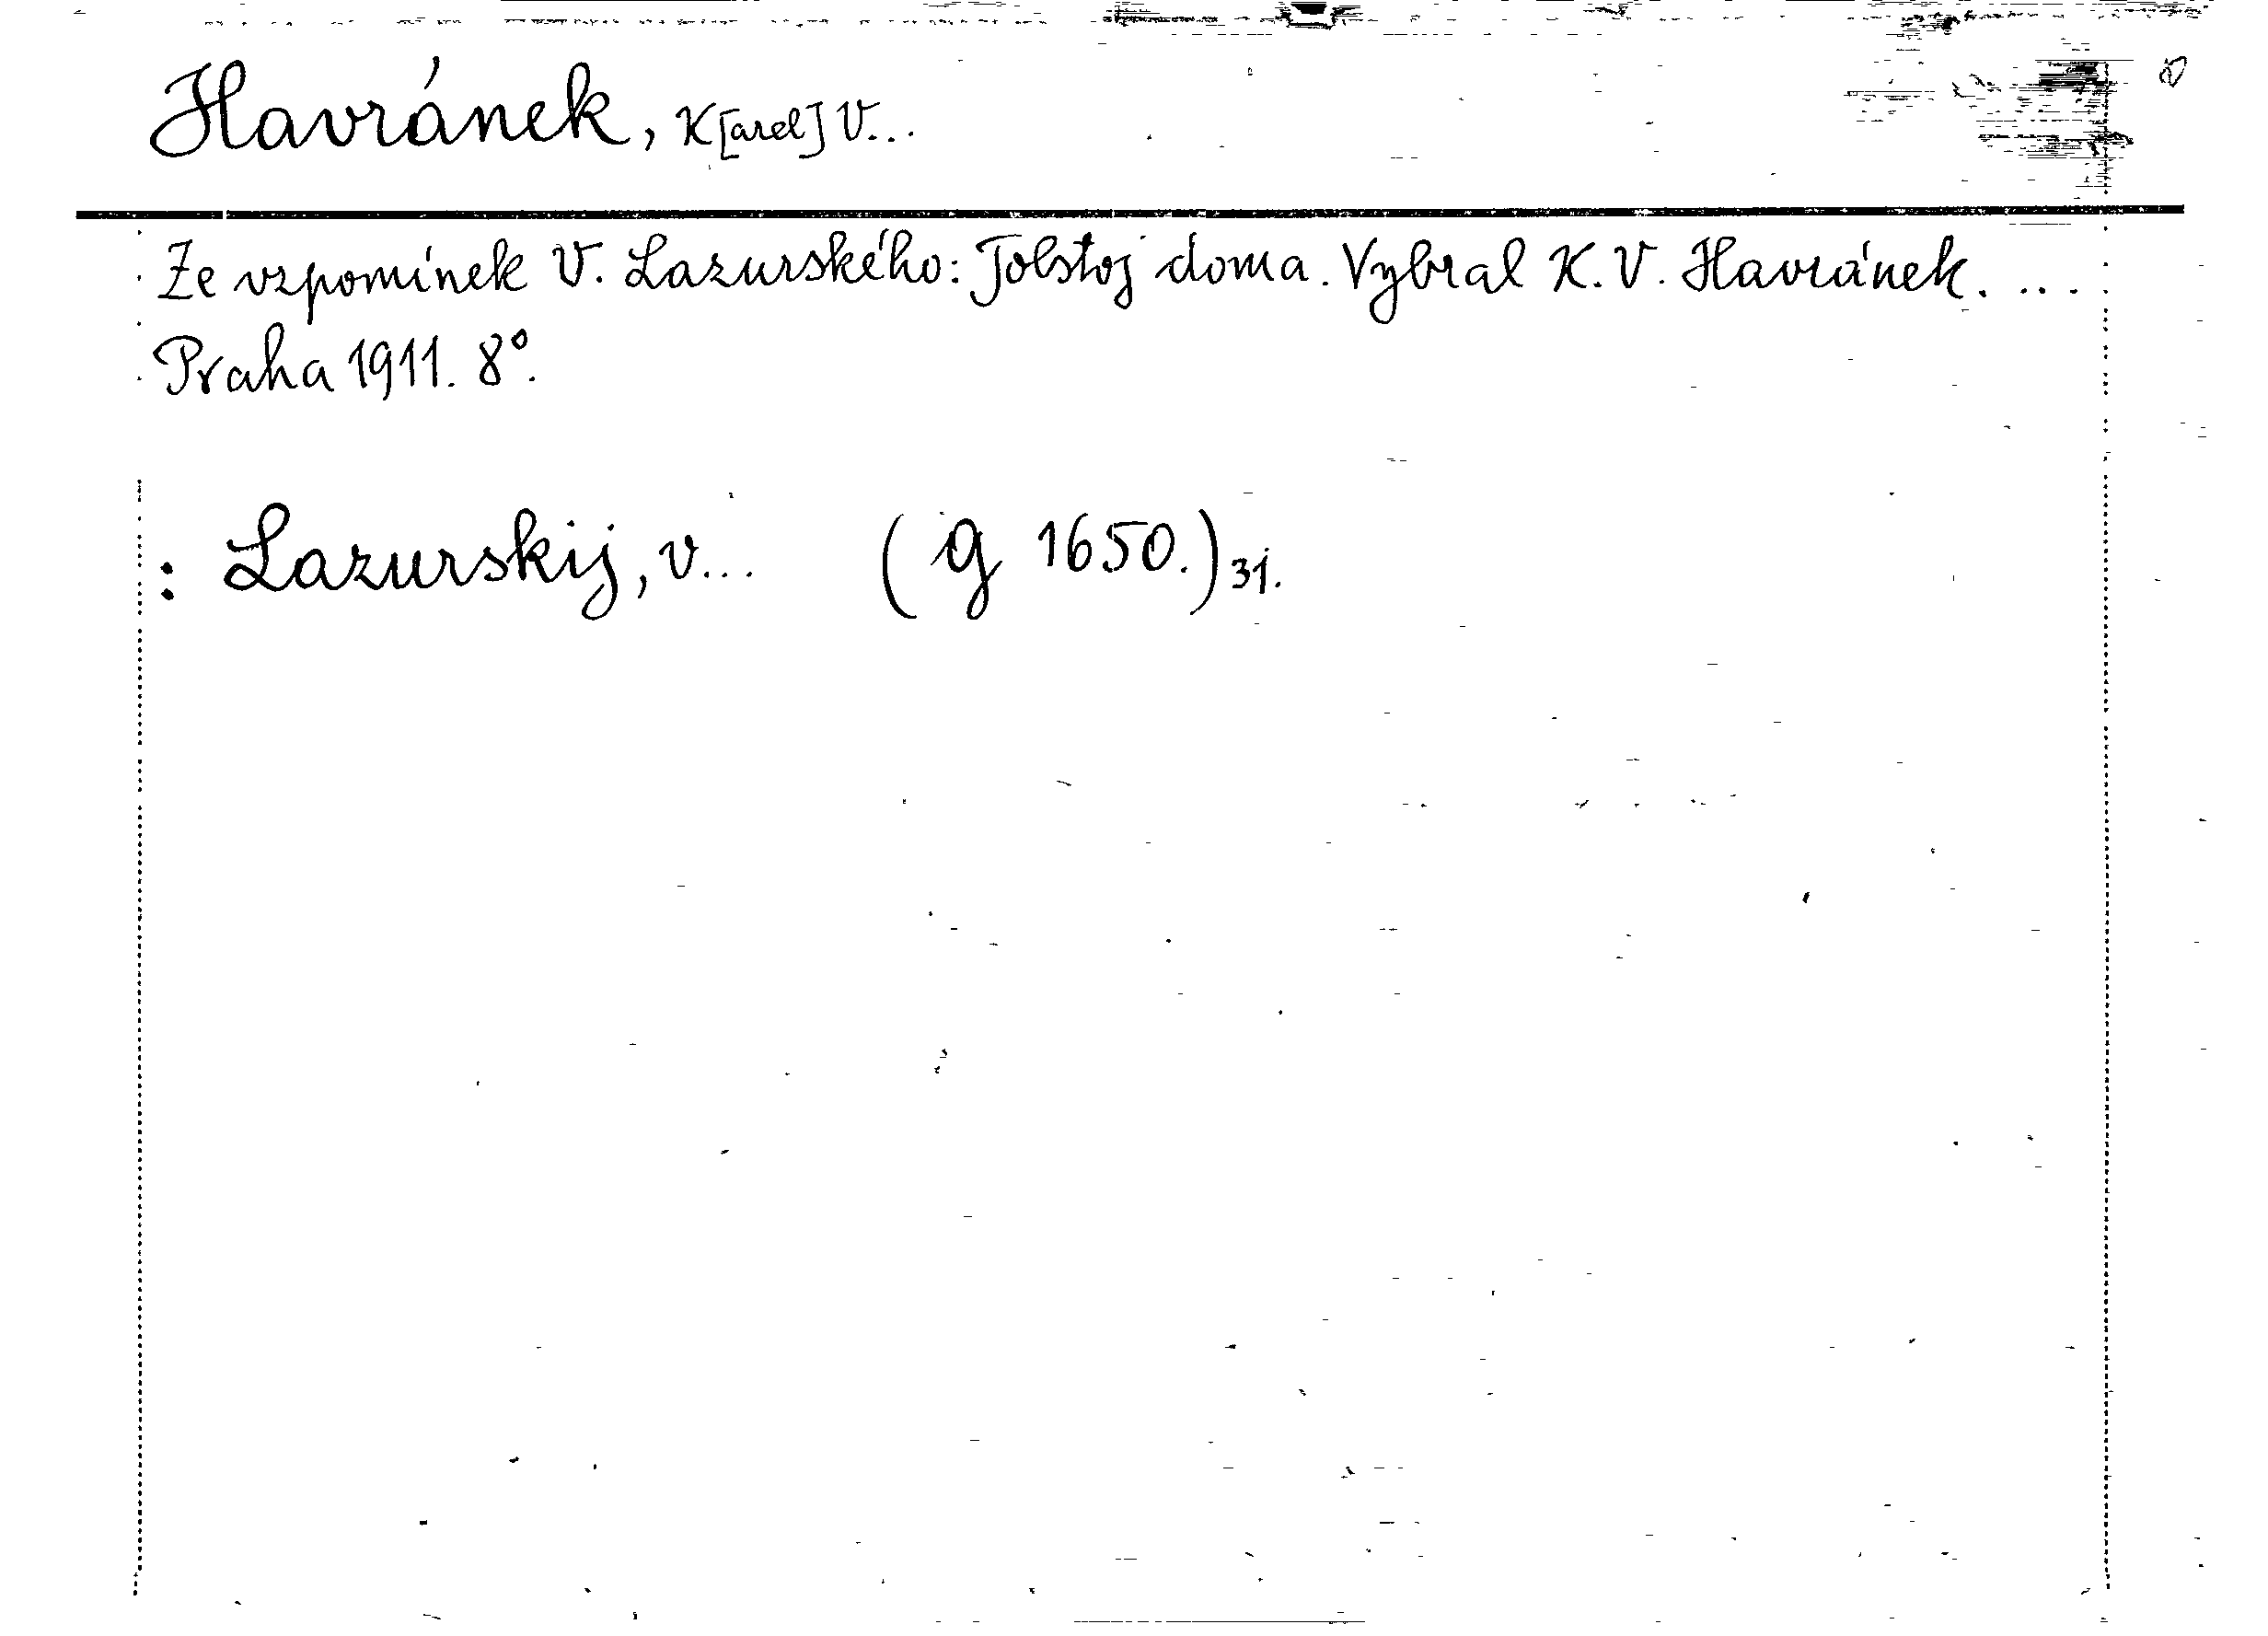 Havránek, K[arel] V...
Ze vzpomínek V. Lazurského: Tolstoj doma. Vybral K. V. Havránek. ...
Praha 1911. 8°.
: Lazurskij, V... (g 1650.) 31.